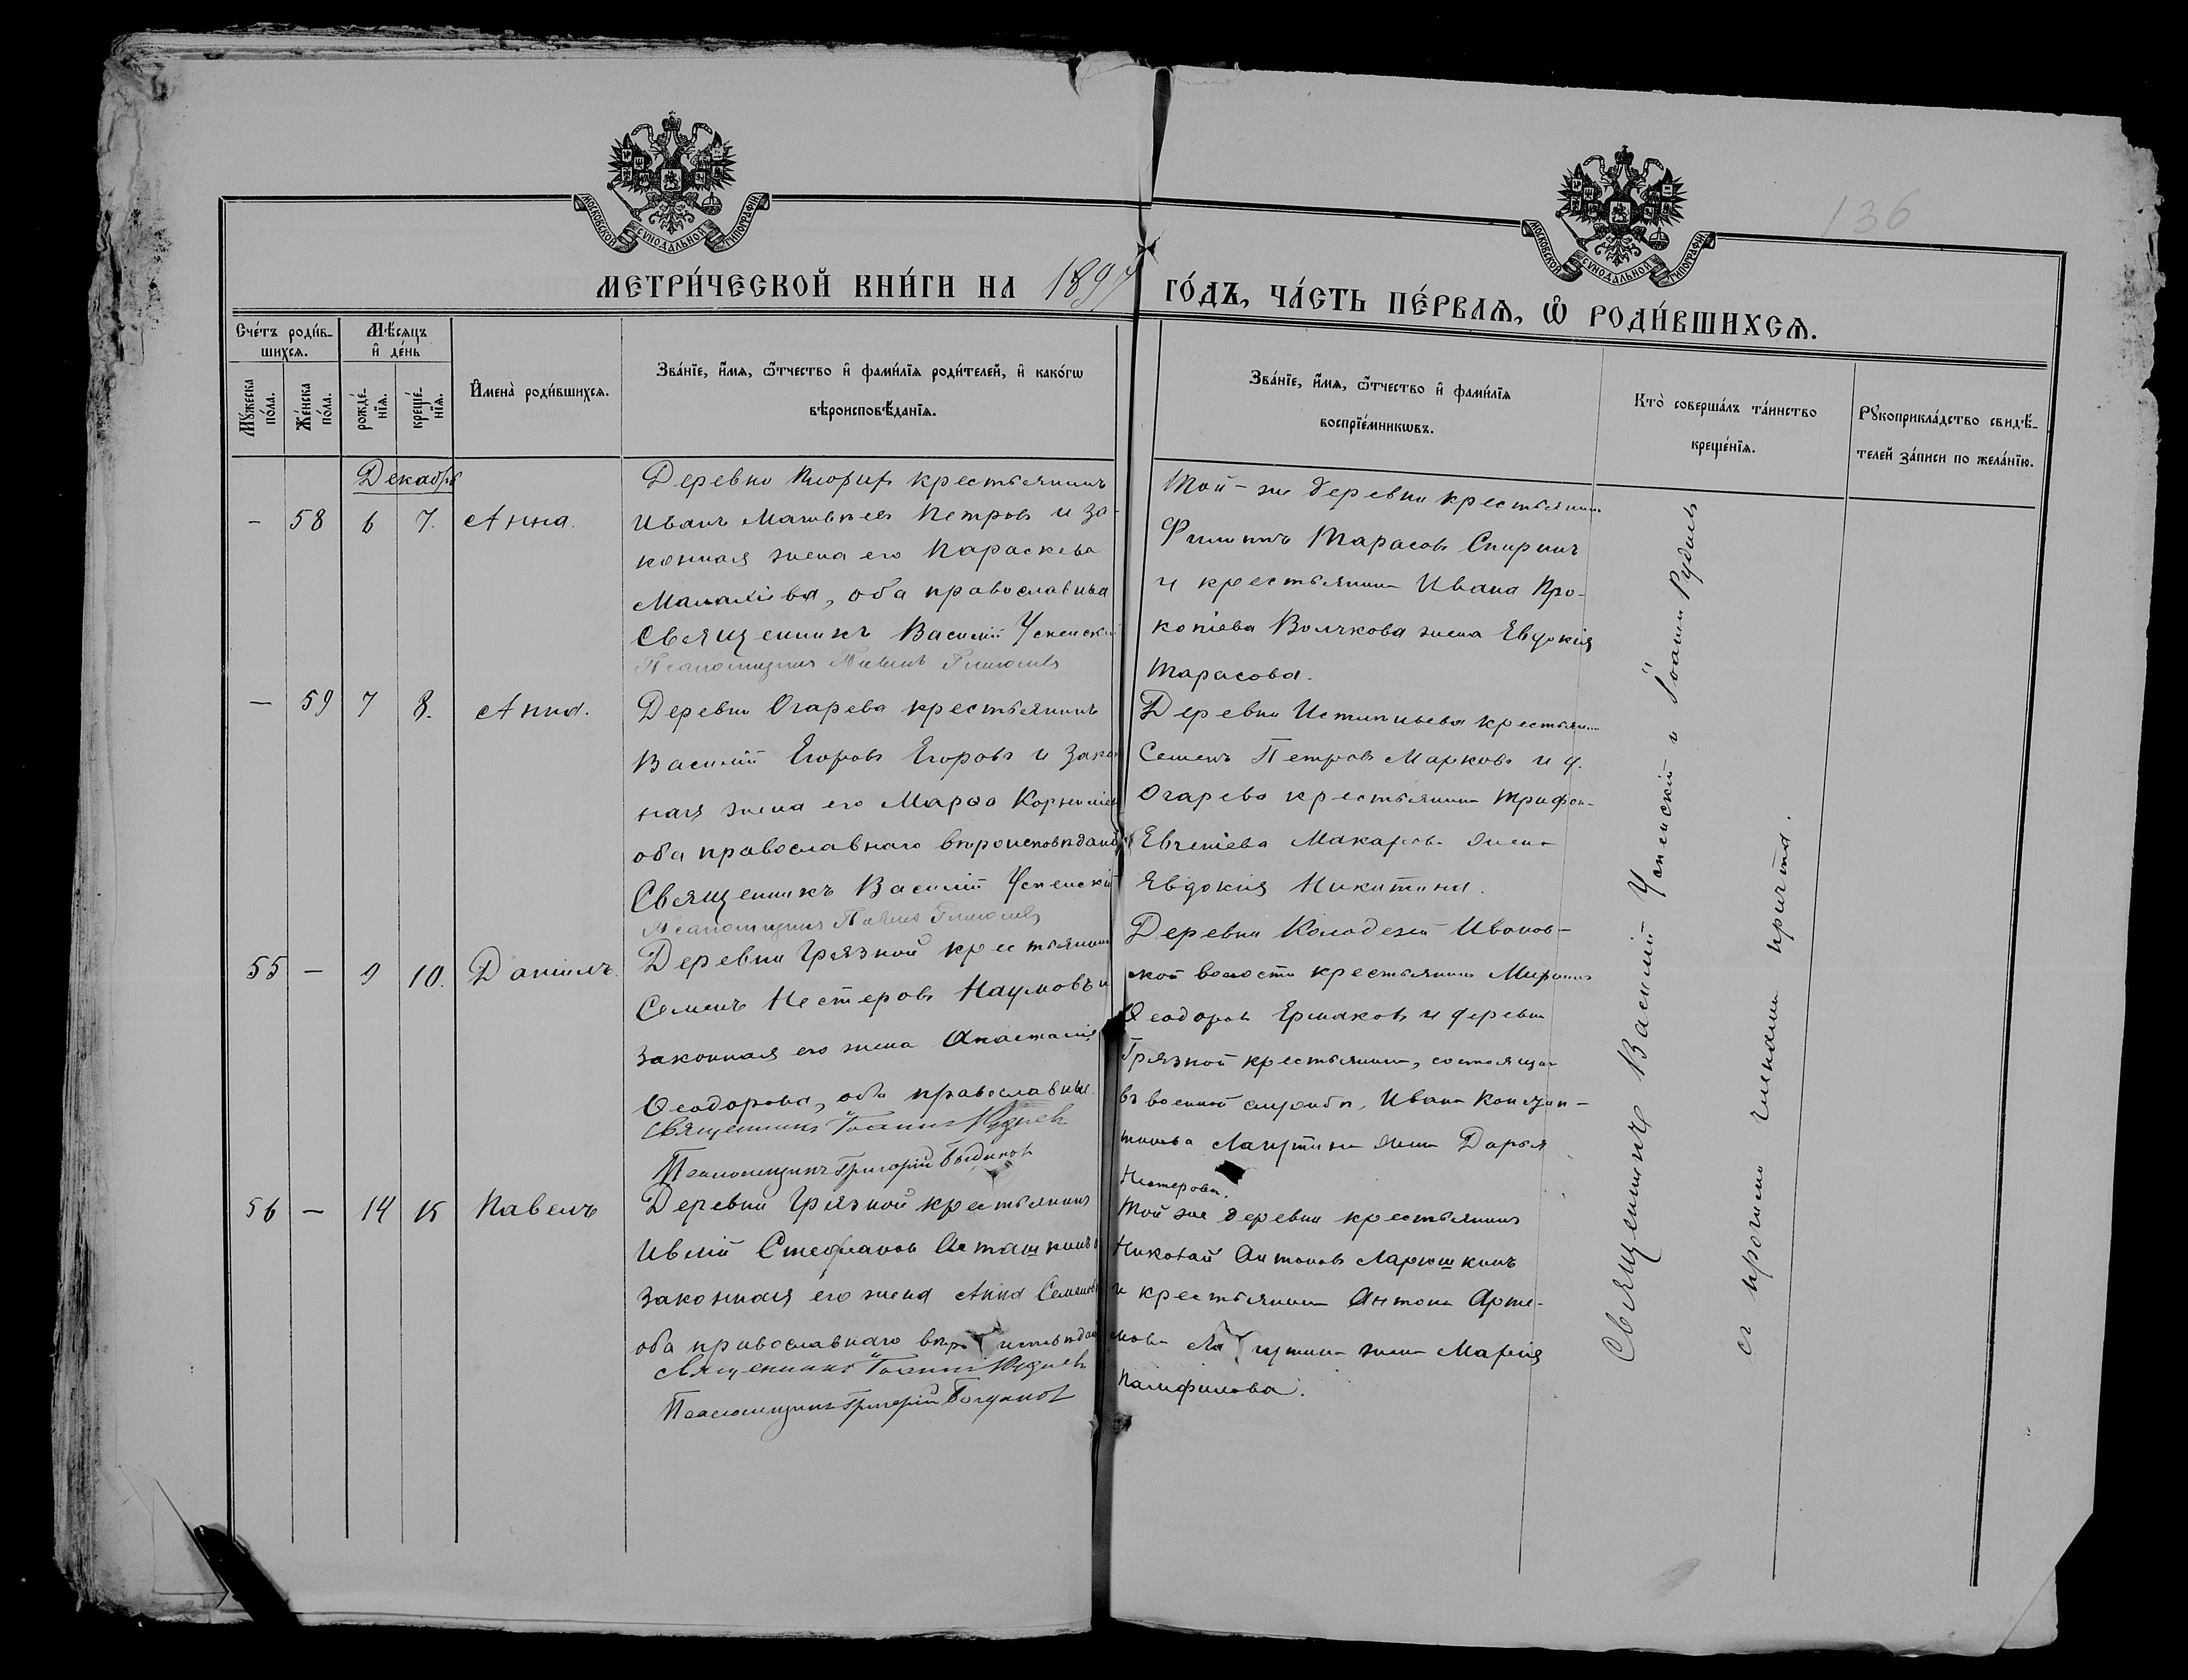 136
МОСКОВСКОЙ СѴНОДАЛЬНОЙ ТИПОГРАФІИ
МОСКОВСКОЙ СѴНОДАЛЬНОЙ ТИПОГРАФІИ
МЕТРИ́ЧЕСКОЙ КНИ́ГИ НА 1897 ГО́ДЪ, ЧА́СТЬ ПЕ́РВАѦ, Ѡ҆ РОДИ́ВШИХСѦ.
Сче́тъ роди́в-
шихсѧ.
Мꙋ́жеска по́ла.
Же́нска по́ла.
Мѣ́сѧцъ
и҆ де́нь
рожде́-
нїѧ.
креще́-
нїѧ.
И҆мена̀ роди́вшихсѧ.
Зва́нїе, и҆́мѧ, ѻ҆́тчество и҆ фами́лїѧ роди́телей, и҆ како́гѡ
вѣроисповѣ́данїѧ.
Зва́нїе, и҆́мѧ, ѻ҆́тчество и҆ фами́лїѧ
воспрїе́мникѡвъ.
Кто̀ соверша́лъ та́инство
креще́нїѧ.
Рꙋкоприкла́дство свидѣ́-
телей за́писи по жела́нїю.
Декабрь
– 58 6 7. Анна.
Деревни крестьянинъ
Иванъ Матвѣевъ Петровъ и за-
конная жена его Параскева
Малахіева, оба православные
Священникъ Василій Успенскій
Псаломщикъ Павелъ
Той-же деревни крестьянинъ
Филиппъ Тарасовъ Спиринъ
и крестьянина Ивана Про-
копіева Волчкова жена Евдокія
Тарасова.
– 59 7 8. Анна.
Деревни Огарева крестьянинъ
Василій Егоровъ Егоровъ и закон
ная жена его Марѳа Корниліева
оба православнаго вѣроисповѣданія
Священникъ Василій Успенскій
Псаломщикъ Павелъ
Деревни крестьянинъ
Семенъ Петровъ Марковъ и д.
Огарева крестьянина Трифона
Евгеніева Макарова жена
Евдокія Никитина.
55 – 9 10. Даніилъ.
Деревни Грязной крестьянинъ
Семенъ Нестеровъ Наумовъ и
законная его жена Анастасія
Ѳеодорова, оба православные.
Священникъ Іоаннъ Рудневъ
Псаломщикъ Григорій
Деревни Колодезей Иванов-
ской волости крестьянинъ
Ѳеодоровъ Ермаковъ и деревни
Грязной крестьянина, состоящаго
въ военной службѣ, Ивана Констан-
тинова жена Дарья
Нестерова.
56 – 14 15 Павелъ
Деревни Грязной крестьянинъ
Стефановъ Асташкинъ и
законная его жена Анна Семенова
оба православнаго вѣроисповѣданія
Священникъ Іоаннъ Рудневъ
Псаломщикъ Григорій Богдановъ
Той же деревни крестьянинъ
Николай Антоновъ Ларюшкинъ
и крестьянина Антона Арте-
мова жена Марія
Панфилова.
Священникъ Василій Успенскій и Іоаннъ Рудневъ
съ прочими членами причта.